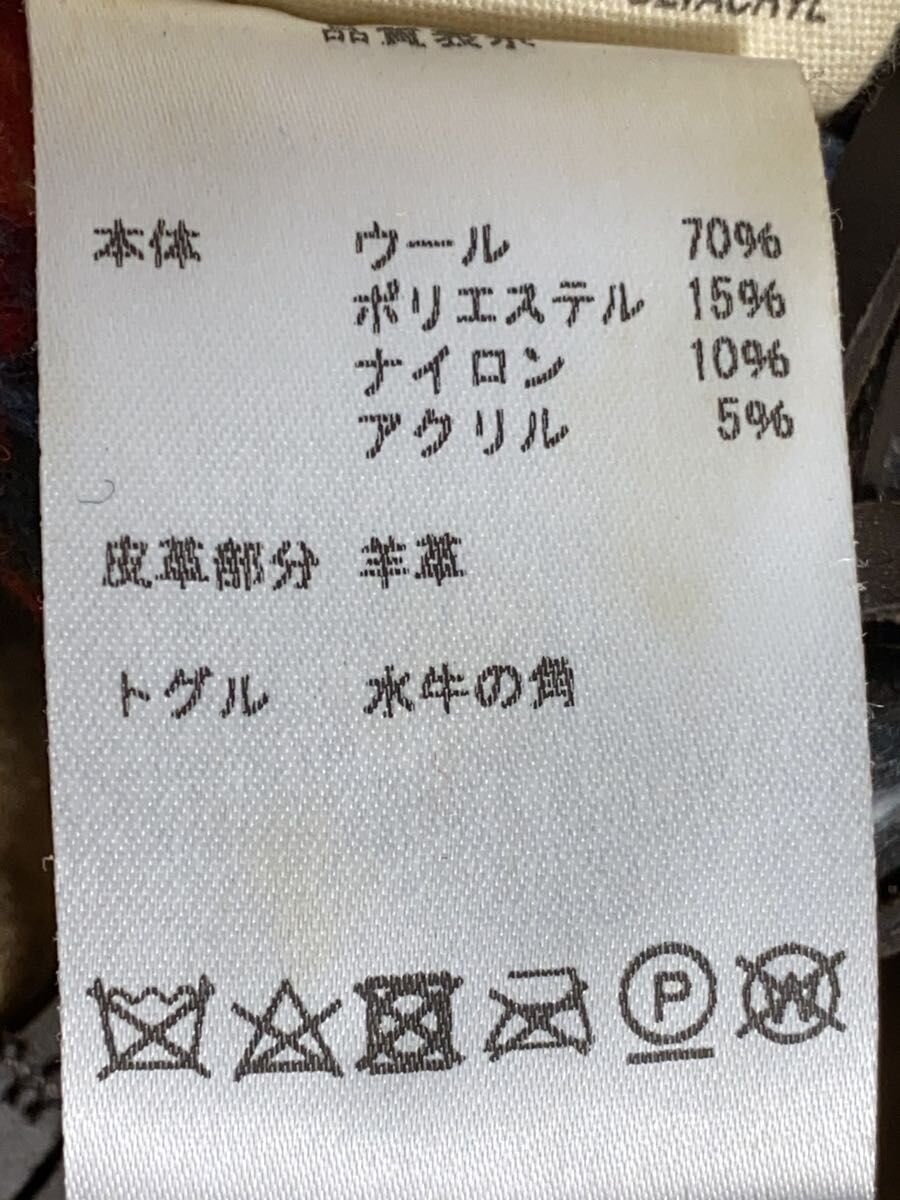 品質表示
本体 ウール 70%
ポリエステル 15%
ナイロン 10%
アクリル 5%
皮革部分 羊革
トグル 水牛の角
P W